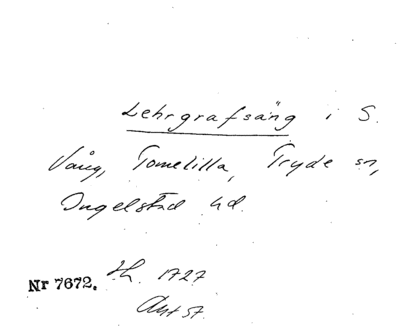 Lehrgrafsäng i S.
Vång, Tomelilla, Tryde sn,
Ingelstad hd.
Nr 7672. 1727